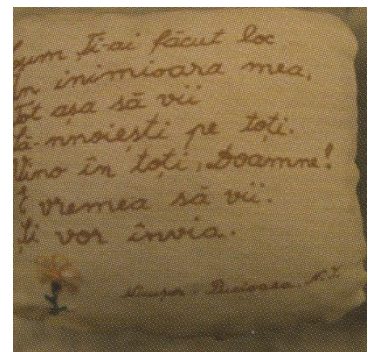 cum Ți-ai făcut loc
în inimioara mea,
Tot așa să vii
să-nnoiești pe toți.
Vino în toți, Doamne!
E vremea să vii.
Și vor învia.